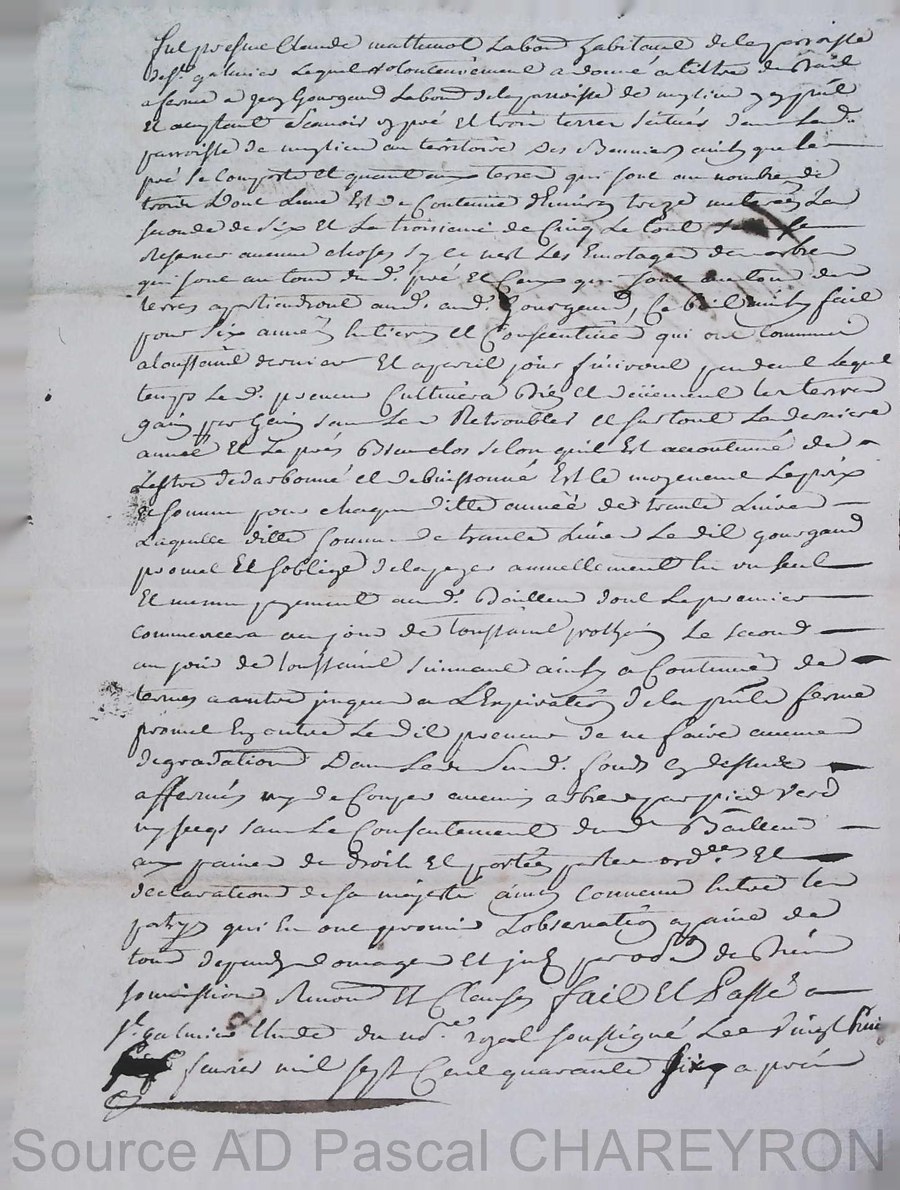 fut présent Claude mattenol Labour habitant de la parroisse
de st galmier Lequel volontairement a donné a tiltre de Bail
a ferme a Jean Gourgaud Labour de la parroisse de
Et acceptant Scavoir un pré Et trois terres Scitués dans Lad.
parroisse de au territoire Des ainsy que le
pré Se Comporte Et quant aux terres qui sont au nombre de
trois Dont Lune Est de Contenue d'Environ treze La
seconde de Six Et La troisieme de Cinq Le tout
Reserver aucune choses Sy ce nest Les Emotages des arbres
qui sont au tour dud. pré Et Ceux qui sont au tour des
terres apartiendront aud. Gourgaud, Ce bail ainsy fait
pour Six années Entieres Et Consecutives qui ont Commancé
a toussaint dernier Et a pareil jour finiront pendant Lequel
temps Led. preneur Cultivera Bien Et deüement les terres
sans Les Retroubler Et surtout La derniere
année Et Le prés Bien clos selon quil Est accoutumé de
Lestre Et debuissonné Est le moyenent Le prix
Et Somme pour chaque ditte année de trante Livres
Laquelle ditte Somme de trante Livres Le dit gourgaud
promet Et Soblige de la payer annuellement En un seul
Et meme payement aud. Bailleur dont Le premier
commencera au jour de toussaint Le second
au jour de toussaint Suivant ainsy a Continuer de
termes a autre jusques a LExpiration de la pnte ferme
promet En outre Le dit preneur de ne faire aucune
degradation Dans Les Susd. fonds cy dessus
affermés ny de Couper aucuns arbres par pied Verd
ny secqs sans Le Consentement dud. Bailleur
aux paines de droit Et portées par les ordces Et
declaration de sa majesté ainsy convenu Entre les
partyes qui En ont promis Lobservation a paine de
tous depends domages Et de Biens
soumission Renon Et Clauses fait Et Passé a
St galmier Etude du nore royal soussigné Le Vingt huit
fevrier mil sept Cent quarante Six
Source AD Pascal CHAREYRON